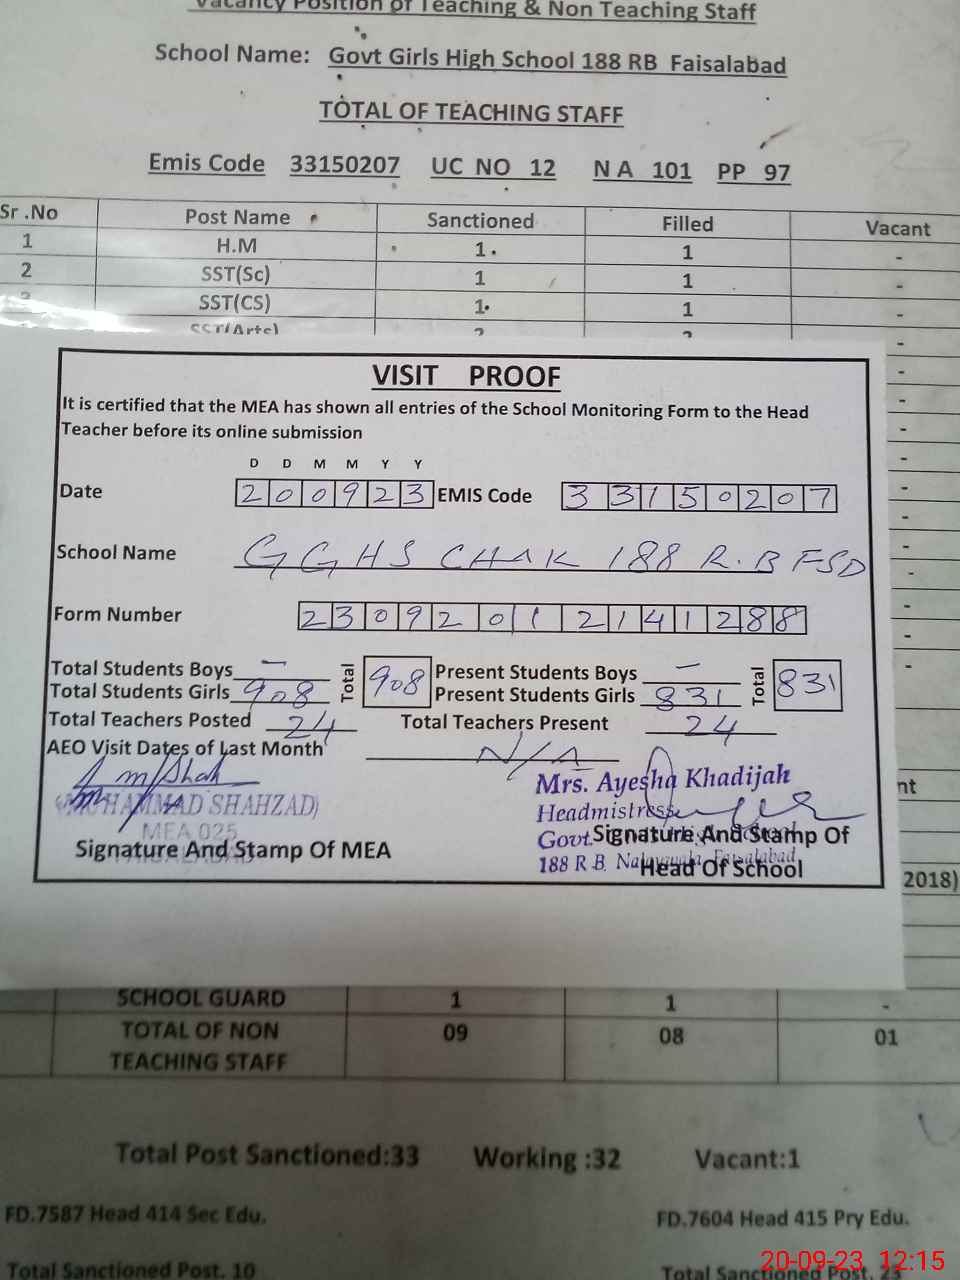 Vacancy Position of Teaching & Non Teaching Staff
School Name: Govt Girls High School 188 RB Faisalabad
TOTAL OF TEACHING STAFF
Emis Code 33150207 UC NO 12 N A 101 PP 97
Sr .No Post Name Sanctioned Filled Vacant
1 H.M 1 1 -
2 SST(Sc) 1 1 -
3 SST(CS) 1 1 -
SST(Arts) 2 2 -
VISIT PROOF
It is certified that the MEA has shown all entries of the School Monitoring Form to the Head
Teacher before its online submission
D D M M Y Y
Date 200923 EMIS Code 33150207
School Name GGHS CHAK 188 R.B FSD
Form Number 23092012141288
Total Students Boys - Total 908 Present Students Boys - Total 831
Total Students Girls 908 Present Students Girls 831
Total Teachers Posted 24 Total Teachers Present 24
AEO Visit Dates of Last Month N/A
(MUHAMMAD SHAHZAD)
MEA 025
Signature And Stamp Of MEA
Mrs. Ayesha Khadijah
Headmistress
Govt.
Signature And Stamp Of
188 R.B. Faisalabad
Head Of School
nt
2018)
SCHOOL GUARD 1 1 -
TOTAL OF NON 09 08 01
TEACHING STAFF
Total Post Sanctioned:33 Working :32 Vacant:1
FD.7587 Head 414 Sec Edu. FD.7604 Head 415 Pry Edu.
Total Sanctioned Post. 10 Total Sanctioned Post.
20-09-23 12:15